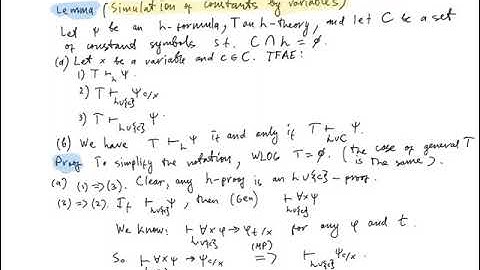 Lemma (Simulation of constants by variables)
Let φ be an h-formula, T an h-theory, and let C be a set
of constant symbols s.t. C ∩ h = ∅.
(a) Let x be a variable and c∈C. TFAE:
1) T ⊢_h φ
2) T ⊢_{h∪{c}} φ_{c/x}
3) T ⊢_{h∪{c}} φ.
(b) We have T ⊢_h φ if and only if T ⊢_{h∪C} φ.
Proof To simplify the notation, WLOG T = ∅. (the case of general T
is the same).
(a) (1)=>(3). Clear, any h-proof is an h∪{c}-proof.
(3)=>(2). If ⊢_{h∪{c}} φ, then (Gen) ⊢_{h∪{c}} ∀xφ
We know: ⊢_{h∪{c}} ∀xφ → φ_{t/x} for any φ and t.
So ⊢_{h∪{c}} ∀xφ → φ_{c/x} (MP) => ⊢_{h∪{c}} φ_{c/x}.